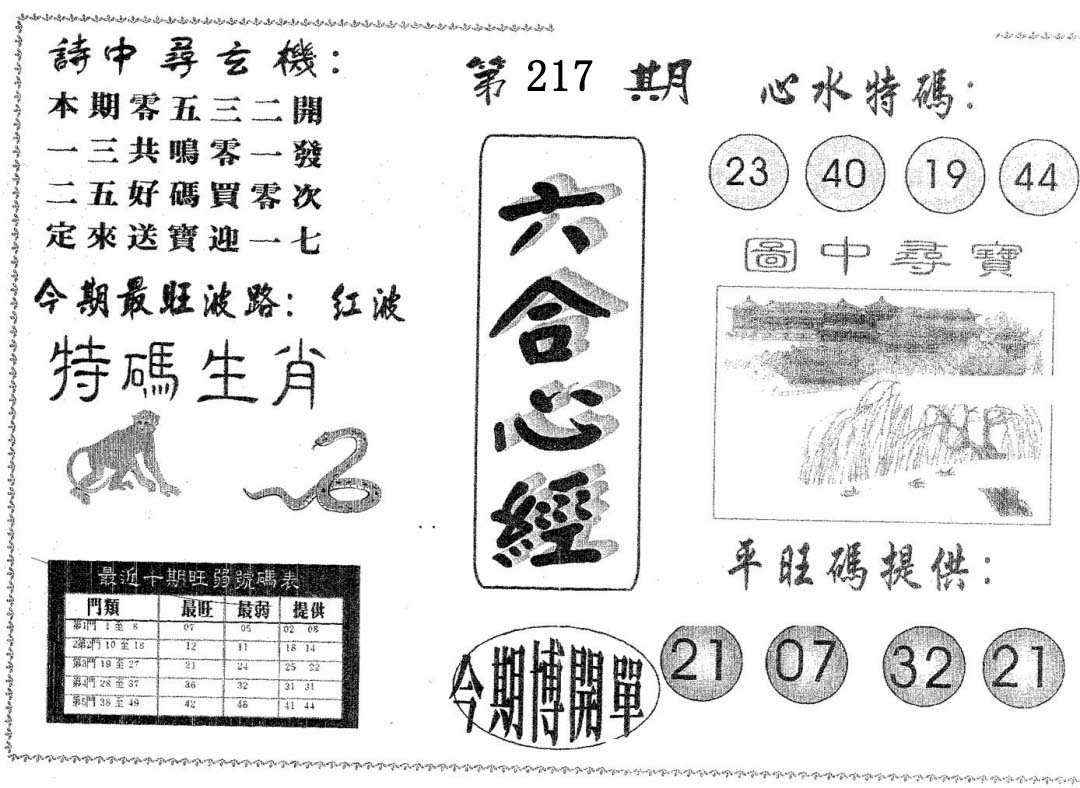 詩中尋玄機：
本期零五三二開
一三共鳴零一發
二五好碼買零次
定來送寶迎一七
今期最旺波路：红波
特碼生肖
最近十期旺弱號碼表
門類 最旺 最弱 提供
第1門 1 至 8 07 05 02 08
第2門 10 至 18 12 11 18 14
第3門 19 至 27 21 24 25 22
第4門 28 至 37 36 32 31 31
第5門 38 至 49 42 46 41 44
第 217 期
六合心經
今期博開單
心水特碼：
23 40 19 44
圖中尋寶
平旺碼提供：
21 07 32 21